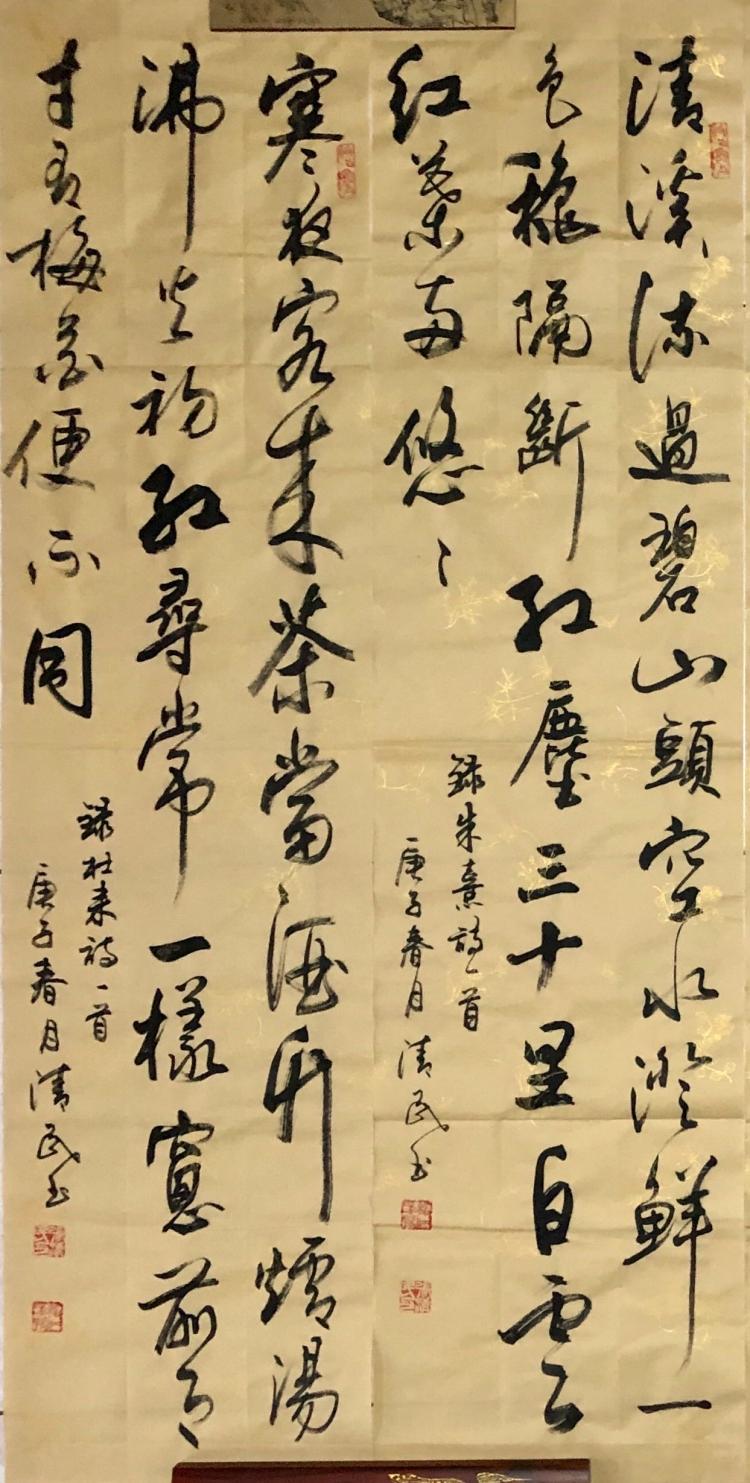 清溪流過碧山頭空水澄鮮一
色穐隔斷紅塵三十里白雲
紅葉兩悠〻
錄朱熹詩一首
庚子春月清民书
寒夜客来茶當酒竹爐湯
沸火初紅尋常一樣窻前月
才有梅花便不同
錄杜耒詩一首
庚子春月清民书